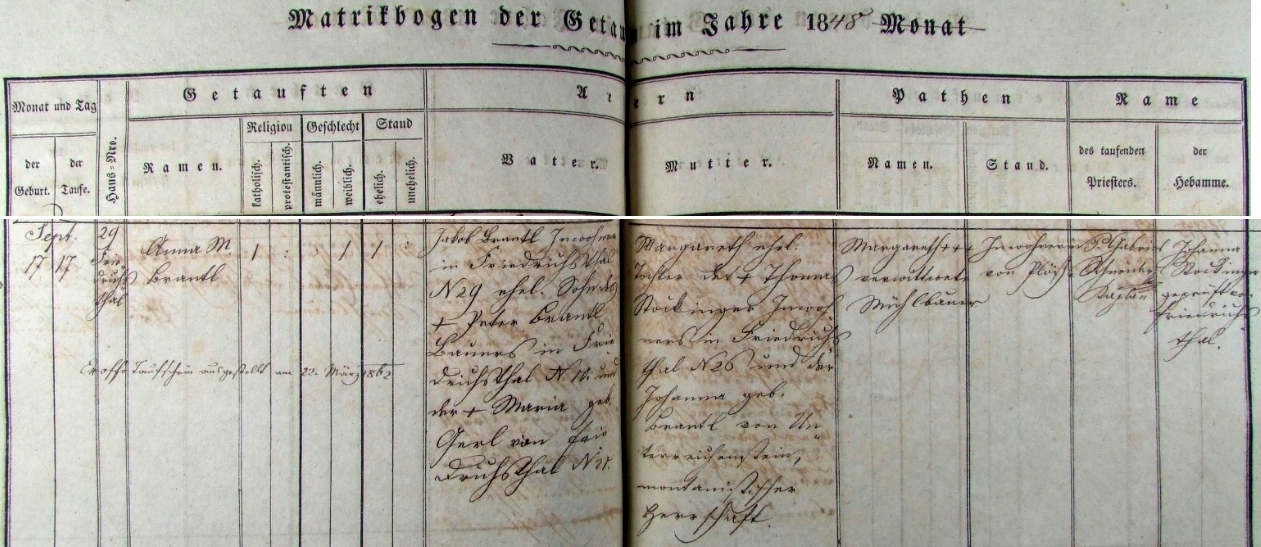 Matrikbogen der Getau im Jahre 1848 Monat
Monat und Tag
der Geburt.
der Taufe.
Haus-Nro.
Getauften
Namen.
Religion
katholisch.
protestantisch.
Geschlecht
männlich.
weiblich.
Stand
ehelich.
unehelich.
Ae ern
Vater.
Mutter.
Pathen
Namen.
Stand.
Name
des taufenden Priesters.
der Hebamme.
Sept.
17 17
29
Frie
drichs
thal
Anna M.
Brantl
1 : : 1 1 :
Taufschein ausgestellt am 22. März 1862
Jakob Brantl Inwohner
in Friedrichsthal
N 29 ehel. Sohn des
+ Peter Brantl
Bauers in Frie
drichsthal N und
der + Maria geb.
Gerl von Frie
drichsthal N 21.
Margareth ehel.
Tochter des + Thomas
Stockinger Inwoh
ners in Friedrichs
thal N 26 und der
Johanna geb.
Brantl von Un
terreichenstein,
montanistischer
Herrschaft.
Margareth +++
verwittwete
Mühlbauer
Inwohnerin
von Plöss
P. Gabriel
Schneider
Kaplan
Johanna
Stockinger
geprüft von
Friedrichs
thal.